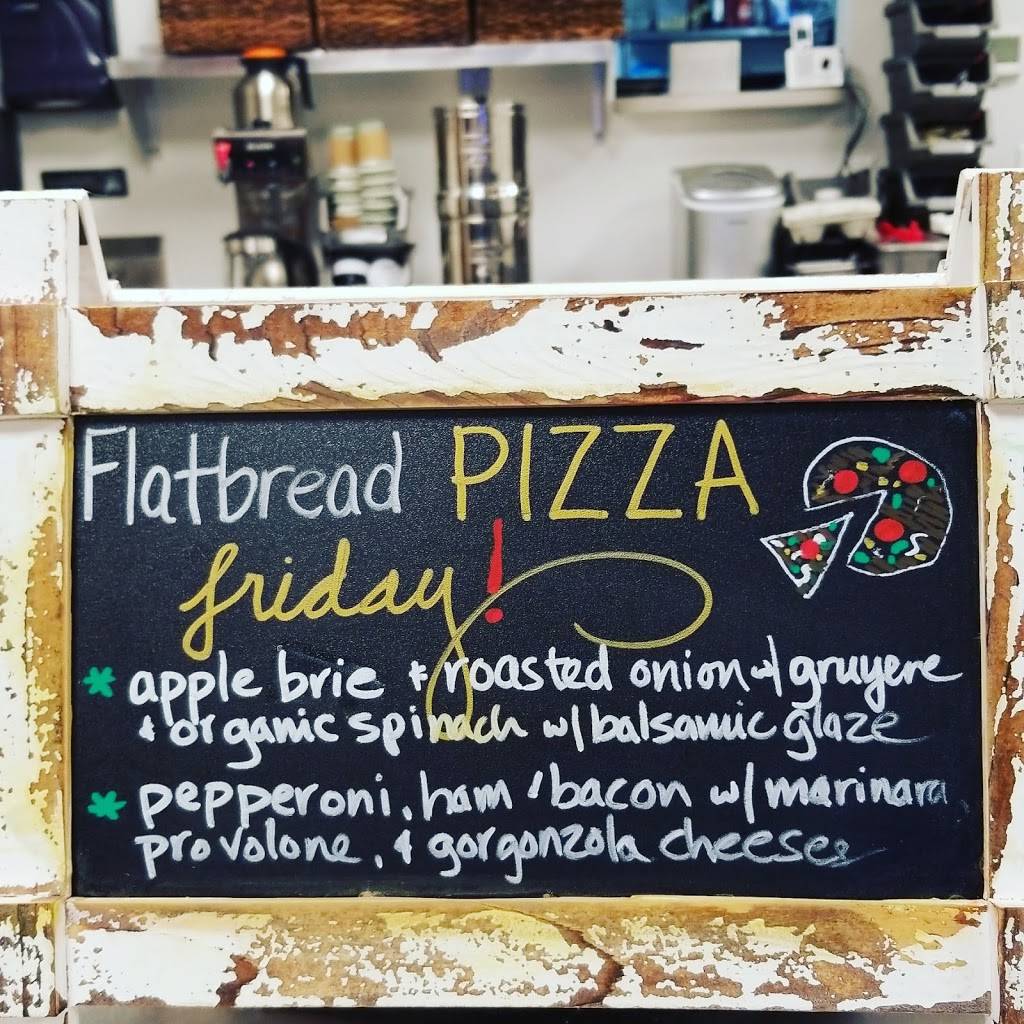 Flatbread PIZZA
friday!
* apple brie + roasted onion w/ gruyere
+ organic spinach w/ balsamic glaze
* pepperoni, ham, bacon w/ marinara,
provolone, & gorgonzola cheeses